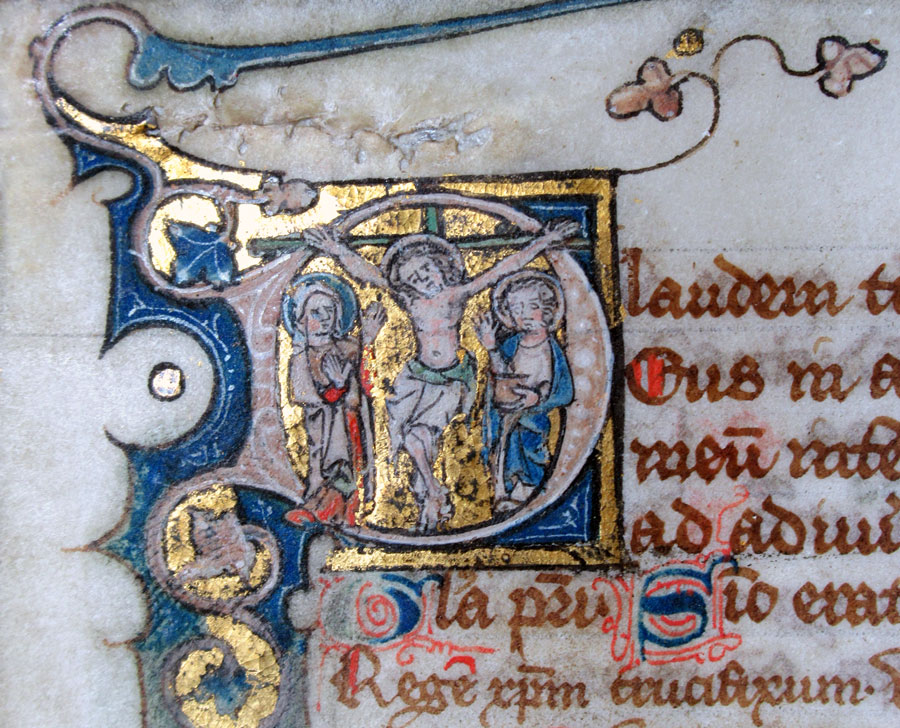 laudem t
Eus in a
meū inte
ad adiuu
Gla pri Sic erat
Rege xpm crucifixum.